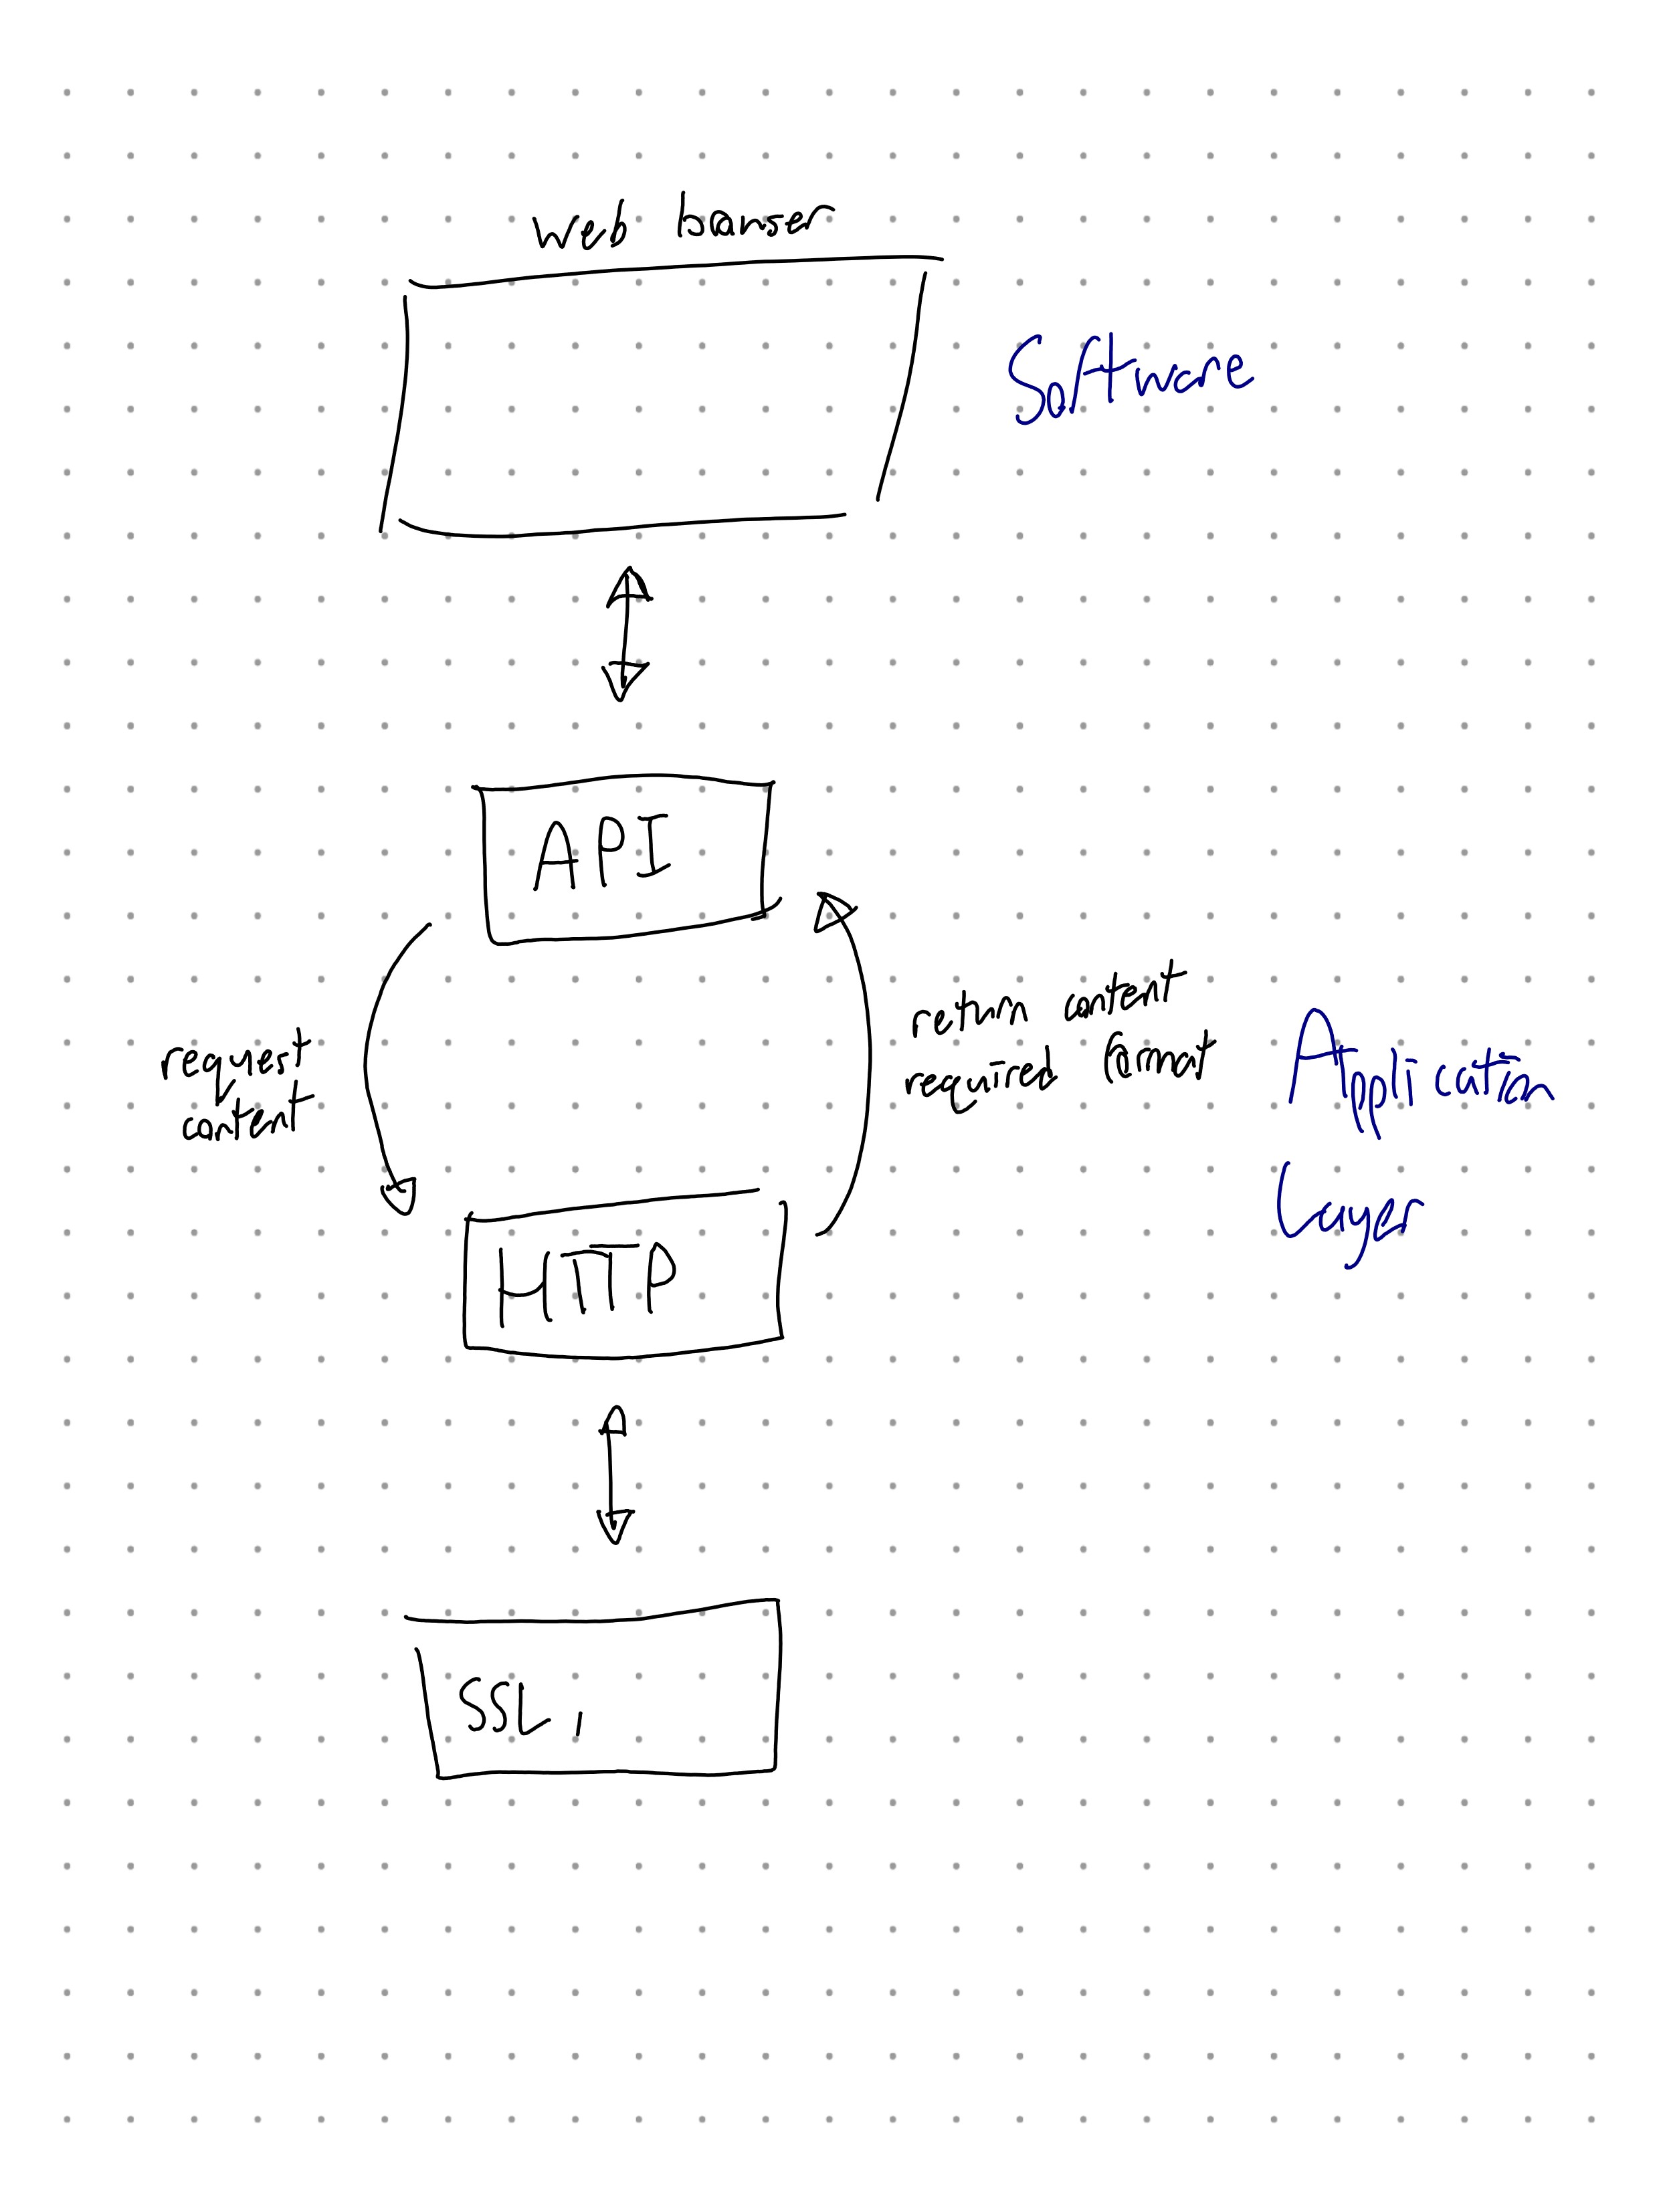 web browser
Software
API
request
content
return content
required format
Application
Layer
HTTP
SSL,